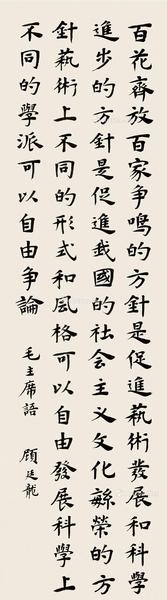 百花齊放百家争鳴的方針是促進藝術發展和科學
進步的方針是促進我國的社会主义文化繇榮的方
針藝術上不同的形式和風格可以自由發展科學上
不同的學派可以自由争論
毛主席語 顧廷龍